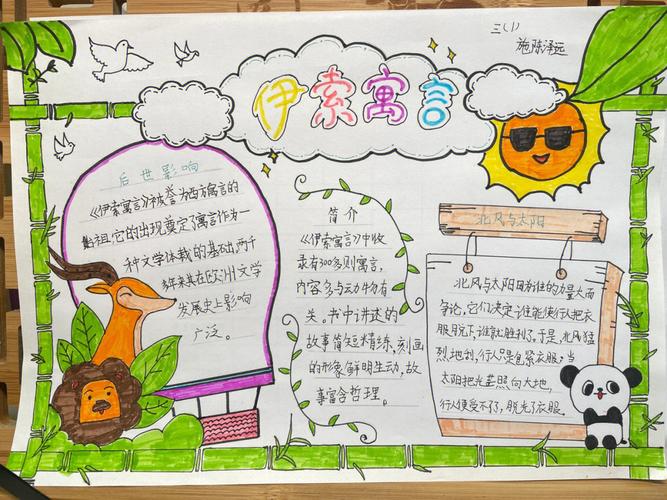 三(1)
施陈泽远
伊索寓言
后世影响
《伊索寓言》被誉为西方寓言的
始祖,它的出现奠定了寓言作为一
种文学体裁的基础,两千
多年来其在欧洲文学
发展史上影响
广泛。
简介
《伊索寓言》中收
录有300多则寓言,
内容多与动物有
关。书中讲述的
故事简短精练,刻画
的形象鲜明生动,故
事富含哲理。
北风与太阳
北风与太阳因为谁的力量大而
争论,它们决定了谁能使行人把衣
服脱下,谁就胜利了,于是,北风猛
烈地刮,行人只是裹紧衣服,当
太阳把光芒照向大地,
行人便受不了,脱光了衣服。